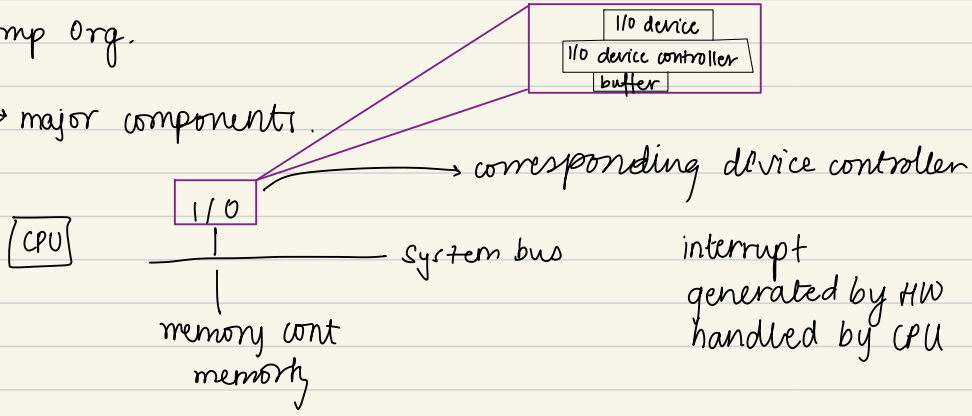 mp Org.
I/O device
I/O device controller
buffer
→ major components.
corresponding device controller
I/O
CPU
system bus
interrupt
generated by HW
handled by CPU
memory cont
memory